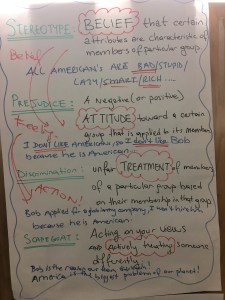 STEREOTYPE: BELIEF that certain
attributes are characteristic of
members of particular group
ALL AMERICAN'S ARE BAD/STUPID/
LAZY/SMART/RICH...
PREJUDICE: A negative (or positive)
ATTITUDE toward a certain
group that is applied to its members
I DON'T LIKE AMERICANS, so I don't like Bob
because he is American...
Discrimination: unfair TREATMENT of members
of a particular group based
on their membership in that group
ACTION!
Bob applied for a job in my company, I won't hire him
because he is American!
SCAPEGOAT: Acting on your views
and actively treating someone
differently
Bob is the reason our team
America is the biggest problem of our planet!